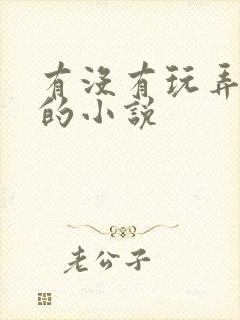 有没有玩弄
的小说
老公子